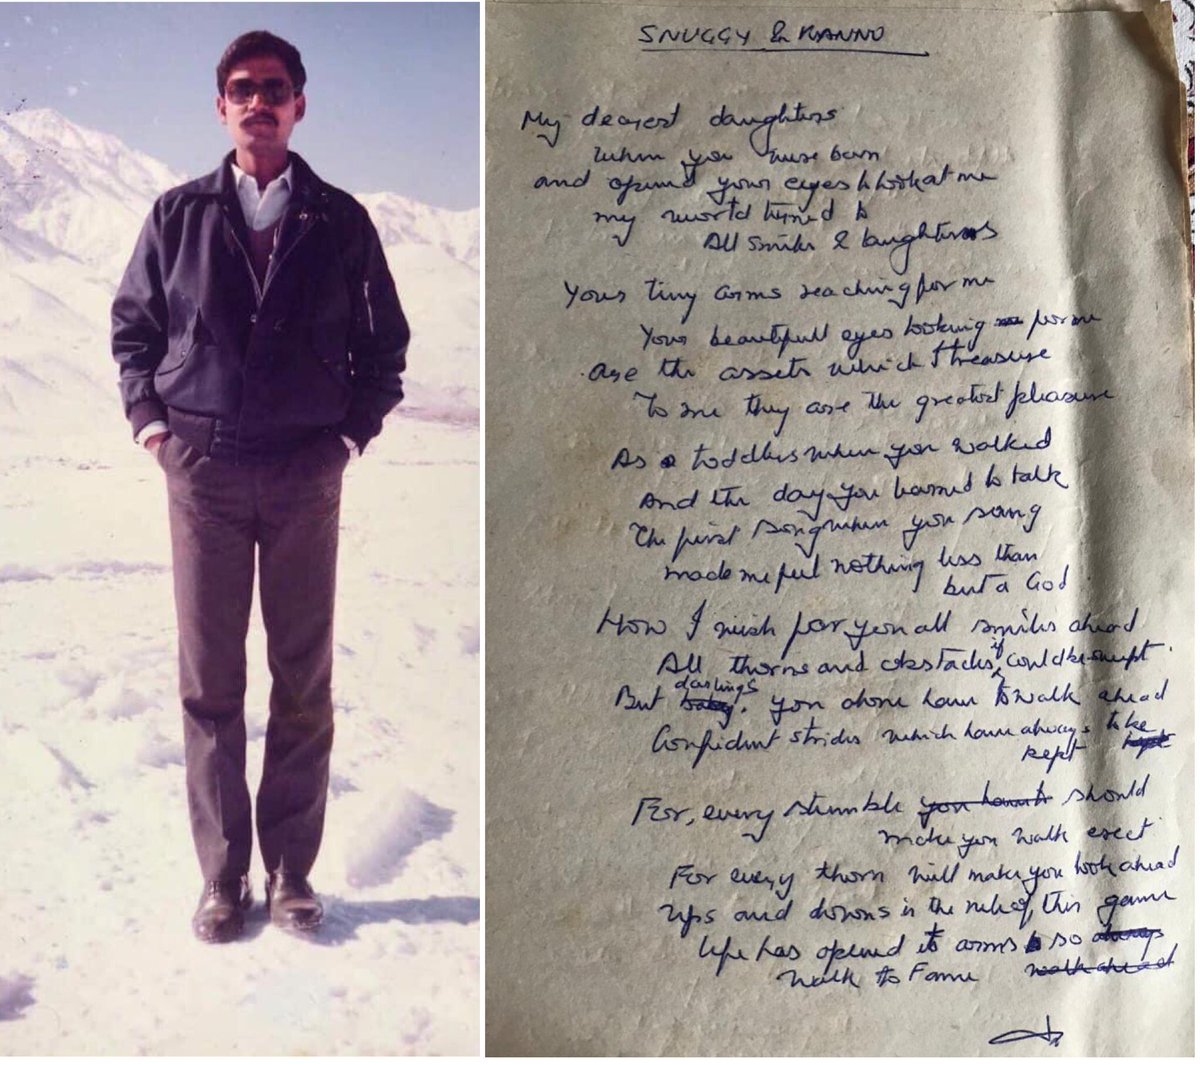 SNUGGY & RANNO
My dearest daughters
When you were born
and opened your eyes to look at me
my world turned to
All smiles & laughters
Your tiny arms reaching for me
Your beautifull eyes looking for me
are the assets which I treasure
To me they are the greatest pleasure
As a toddlers when you walked
And the day you learned to talk
The first song when you sang
made me feel nothing less than
but a God
How I wish for you all smiles ahead
All thorns and obstacles if could be swept
But darlings you alone have to walk ahead
Confident strides which have always to be
kept
For, every stumble should
make you walk erect
For every thorn will make you look ahead
Ups and downs is the rule of this game
life has opened its arms so
walk to Fame